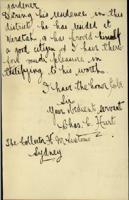 gardener
During his residence in this
district he has resided at
Waratah & has proved himself
a good citizen & I have there
fore much pleasure in
testifying to his worth.
I have the honor to be
Sir
Your obedient servant
Chas. C. Hurt
The Collector H. M. Customs
Sydney